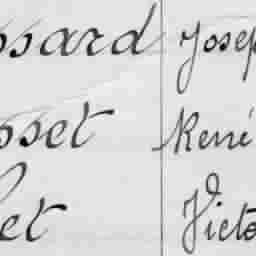 ssard Josep
sset René
et Victo